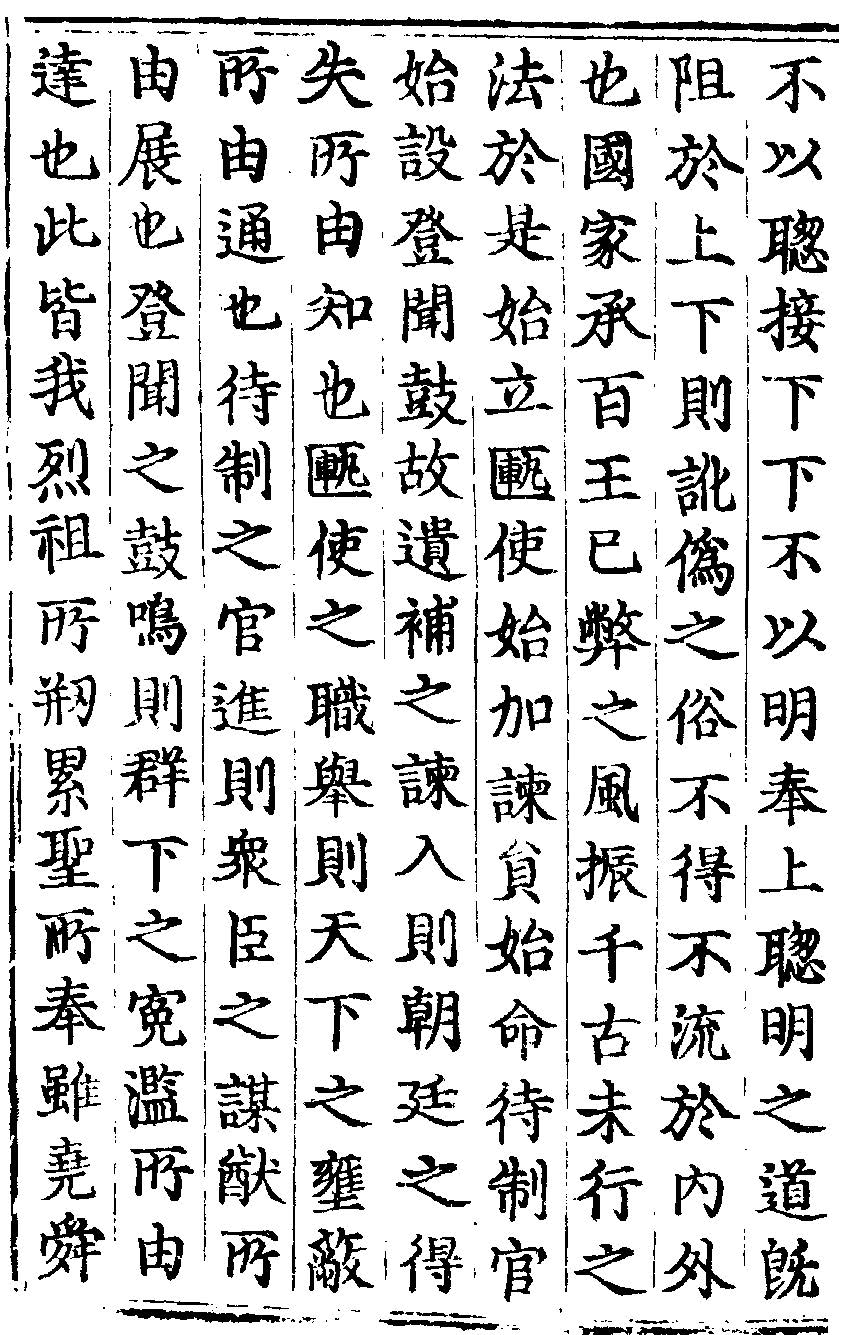 不以聦接下下不以明奉上聦明之道旣
阻於上下則訛僞之俗不得不流於内外
也國家承百王已弊之風振千古未行之
法於是始立匭使始加諫員始命待制官
始設登聞鼓故遺補之諫入則朝廷之得
失所由知也匭使之職舉則天下之壅蔽
所由通也待制之官進則衆臣之謀猷所
由展也登聞之鼓鳴則群下之寃濫所由
達也此皆我烈祖所剏累聖所奉雖堯舜